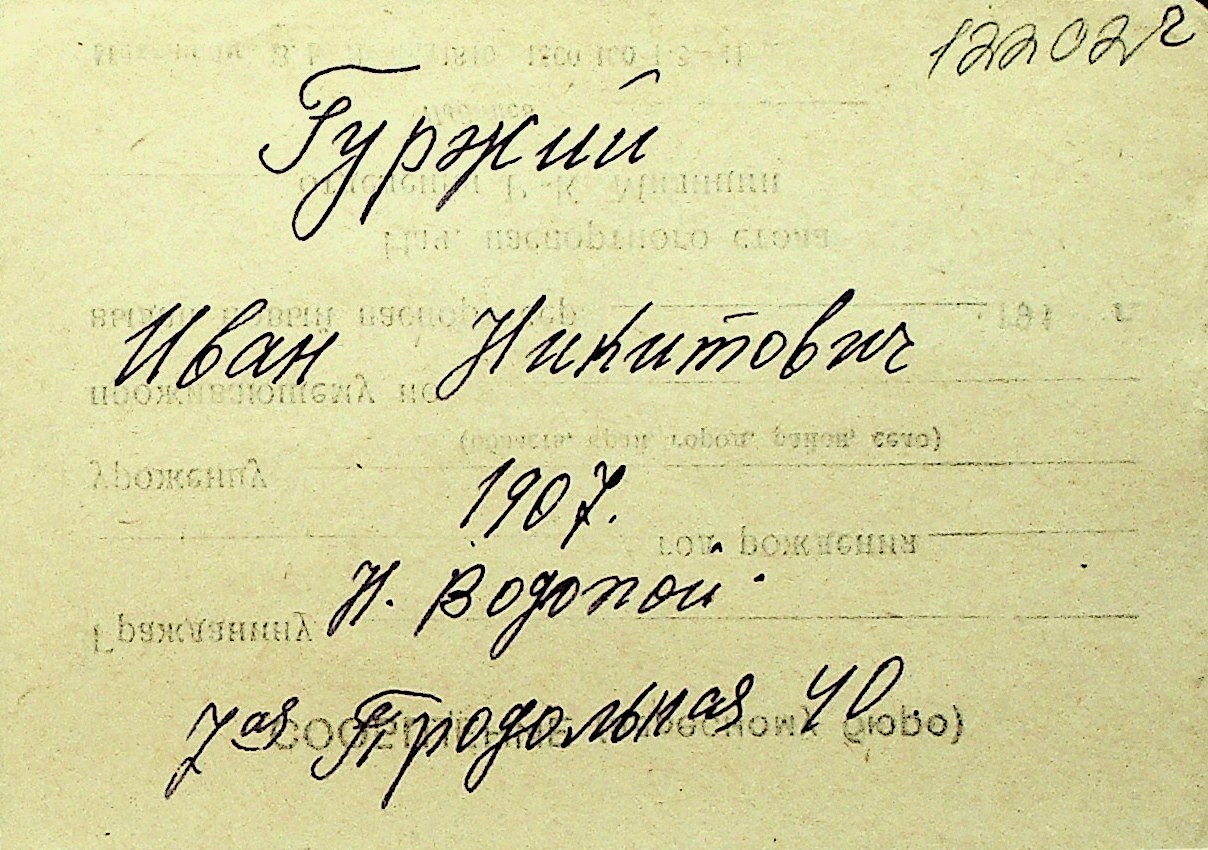 12202г
Гуржий
Иван Никитович
1907.
Н. Водопой.
7ая Продольная 40.